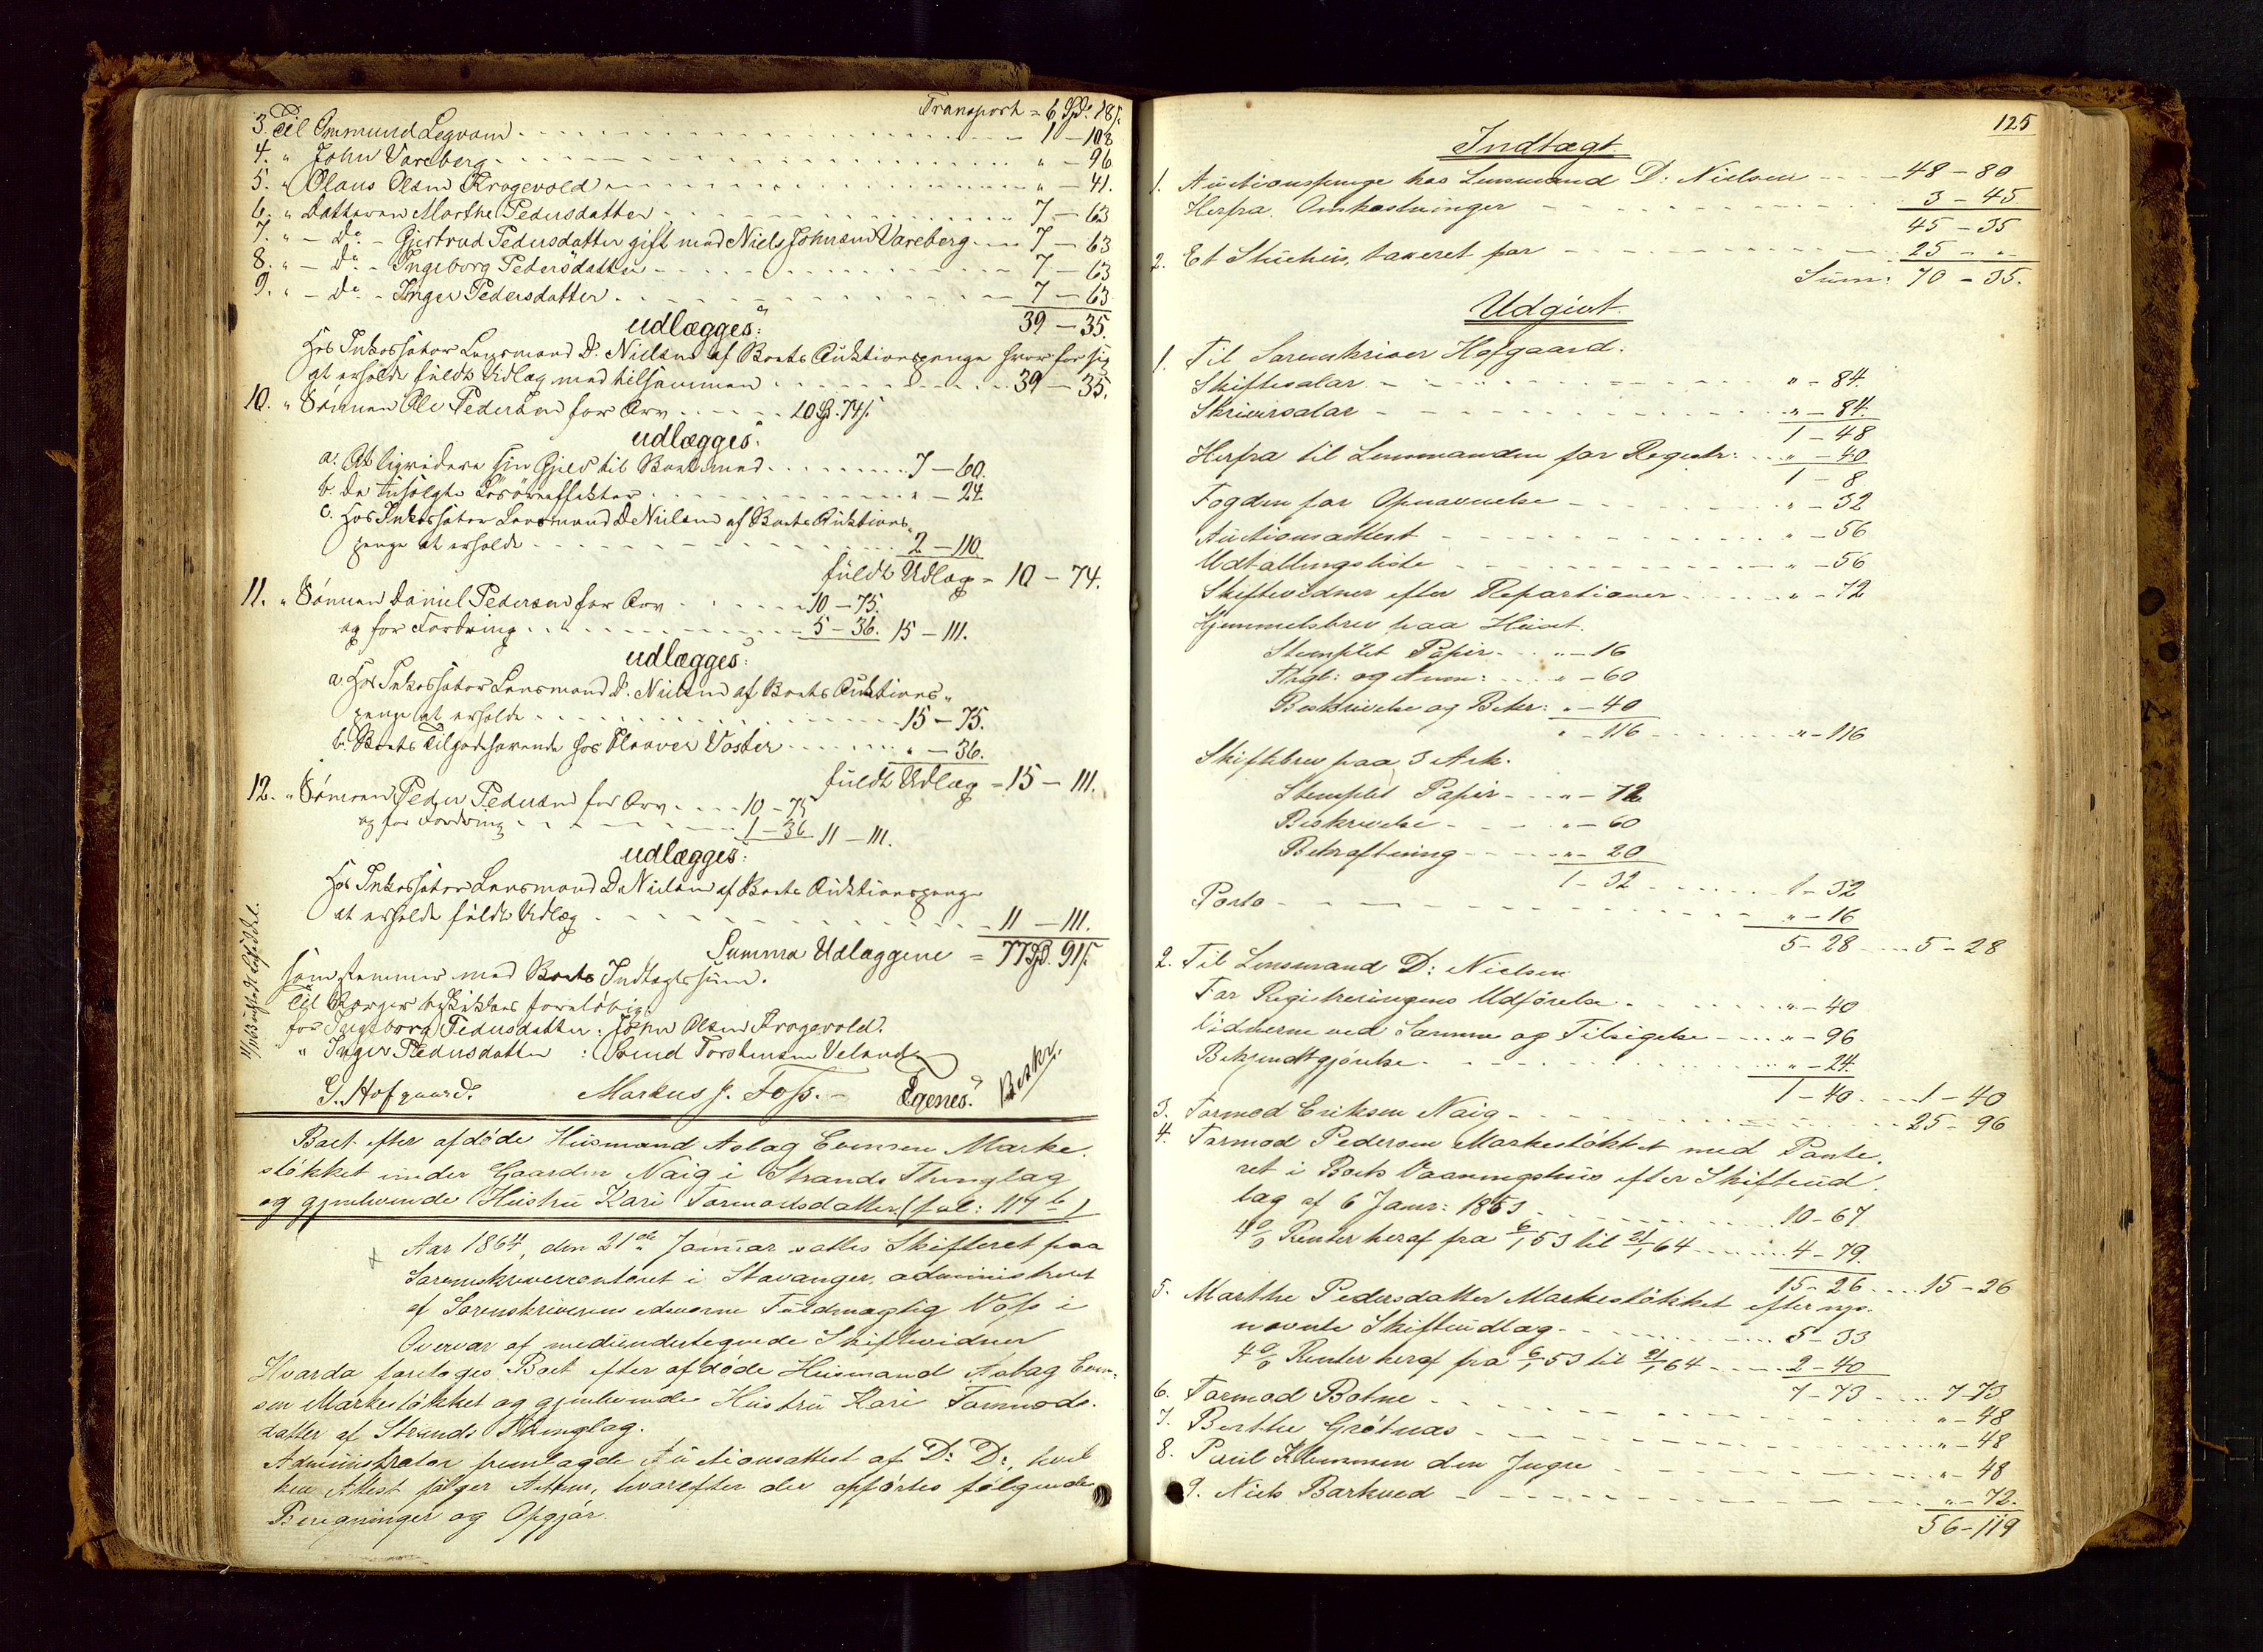 Transport = 6 Spd. 18 s.
3. Til Ommund Legvam 1 - 103
4. " John Vareberg " - 96
5. " Olaus Olsen Krogevold " - 41.
6. " Datteren Marthe Pedersdatter 7 - 63
7. " - Do - Gjertrud Pedersdatter gift med Niels Johnsen Vareberg 7 - 63
8. " - Do - Ingeborg Pedersdatter 7 - 63
9. " - Do - Inger Pedersdatter 7 - 63
39 - 35.
udlægges:
Hos Inkassator Lensmand D. Nielsen af Boets Auktionspenge hver for sig
at erholde fuldt Udlæg med tilsammen 39 - 35.
10. " Sønnen Ole Pedersen for Arv 10 Spd. 74 s.
udlægges:
a. At liqvidere sin Gjeld til Boet med 7 - 60.
b. De usolgte Løsøreffekter " - 24
c. Hos Inkassator Lensmand D Nielsen af Boets Auktions-
penge at erholde 2 - 110
fuldt Udlæg = 10 - 74.
11. " Sønnen Daniel Pedersen for Arv 10 - 75.
og for Fordring 5 - 36. 15 - 111.
udlægges:
a Hos Inkassator Lensmand D. Nielsen af Boets Auktions-
penge at erholde 15 - 75.
b. Boets Tilgodehavende hos Vaster " - 36.
fuldt Udlæg = 15 - 111.
12. " Sønnen Peder Pedersen for Arv 10 - 75
og for Fordring 1 - 36 11 - 111.
udlægges:
Hos Inkassator Lensmand D. Nielsen af Boets Auktionspenge
at erholde fuldt Udlæg 11 - 111.
Summa Udlæggene = 77 Spd. 91 s.
som stemmer med Boets Indtægtssum.
Til Værger beskikkes foreløbig:
for Ingeborg Pedersdatter: John Olsen Krogevold.
" Inger Pedersdatter : Svend Torstensen Veland
G. Hofgaard. Markus J. Foss. - Egenes. Beskr.
Boet efter afdøde Huusmand Aslag Evensen Marke-
støkket under Gaarden Naig i Strands Thinglag
og gjenlevende Hustru Kari Tormodsdatter (fol: 117 b)
Aar 1864, den 21de Januar sattes Skifteret paa
Sorenskrivercontoret i Stavanger, administreret
af Sorenskriverens edsvorne Fuldmægtig Voss i
Overvær af medundertegnede Skiftevidner
Hvorda foretoges Boet efter afdøde Huusmand Aslag Even-
sen Markestøkket og gjenlevende Hustru Kari Tormods-
datter af Strands Thinglag.
Administrator fremlagde Auctionsattest af D: D:, hvil-
ken Attest følger Acten, hvorefter der opførtes følgende
Beregninger og Opgjør.
125
Indtægt.
1. Auctionspenge hos Lensmand D: Nielsen 48 - 80
Herfra Omkostninger 3 - 45
45 - 35
2. Et Stuehus, taxeret for 25 - "
Sum: 70 - 35.
Udgivt.
1. Til Sorenskriver Hofgaard.
Skiftesalær " - 84.
Skriversalær " - 84.
1 - 48
Herfra til Lensmanden for Registr: " - 40
1 - 8
Fogden for Opnævnelse " - 32
Auctionsattest " - 56
Udtællingsliste " - 56
Skiftevidner efter Repartioner " - 72
Hjemmelsbrev paa Huset.
Stemplet Papir " - 16
Thgl: og Ann: " - 60
Beskrivelse og Bekr: " - 40
" - 116 " - 116
Skiftebrev paa 3 Ark.
Stemplet Papir " - 72
Beskrivelse " - 60
Bekræftning " - 20
1 - 32 1 - 32
Porto " - 16
5 - 28 5 - 28
2. Til Lensmand D: Nielsen
For Registreringens Udførelse " - 40
Vidnerne ved Samme og Tilsigelse " - 96
Bekjendtgjørelse " - 24.
1 - 40 1 - 40
3. Tormod Eriksen Naig 25 - 96
4. Tormod Pedersen Markestøkket med Pante-
ret i Boets Vaaningshuus efter Skifteud-
læg af 6 Janr: 1853 10 - 67
4 % Renter heraf fra 6/1 53 til 21/1 64 4 - 79.
15 - 26 15 - 26
5. Marthe Pedersdatter Markestøkket efter nys-
nævnte Skifteudlæg 5 - 33
4 % Renter heraf fra 6/1 53 til 21/1 64 2 - 40
7 - 73 7 - 73
6. Tormod Botne " - 48
7. Berthe Grøtnæs " - 48
8. Poul Klemmen den Yngre " - 48
9. Niels Barkved " - 72.
56 - 119